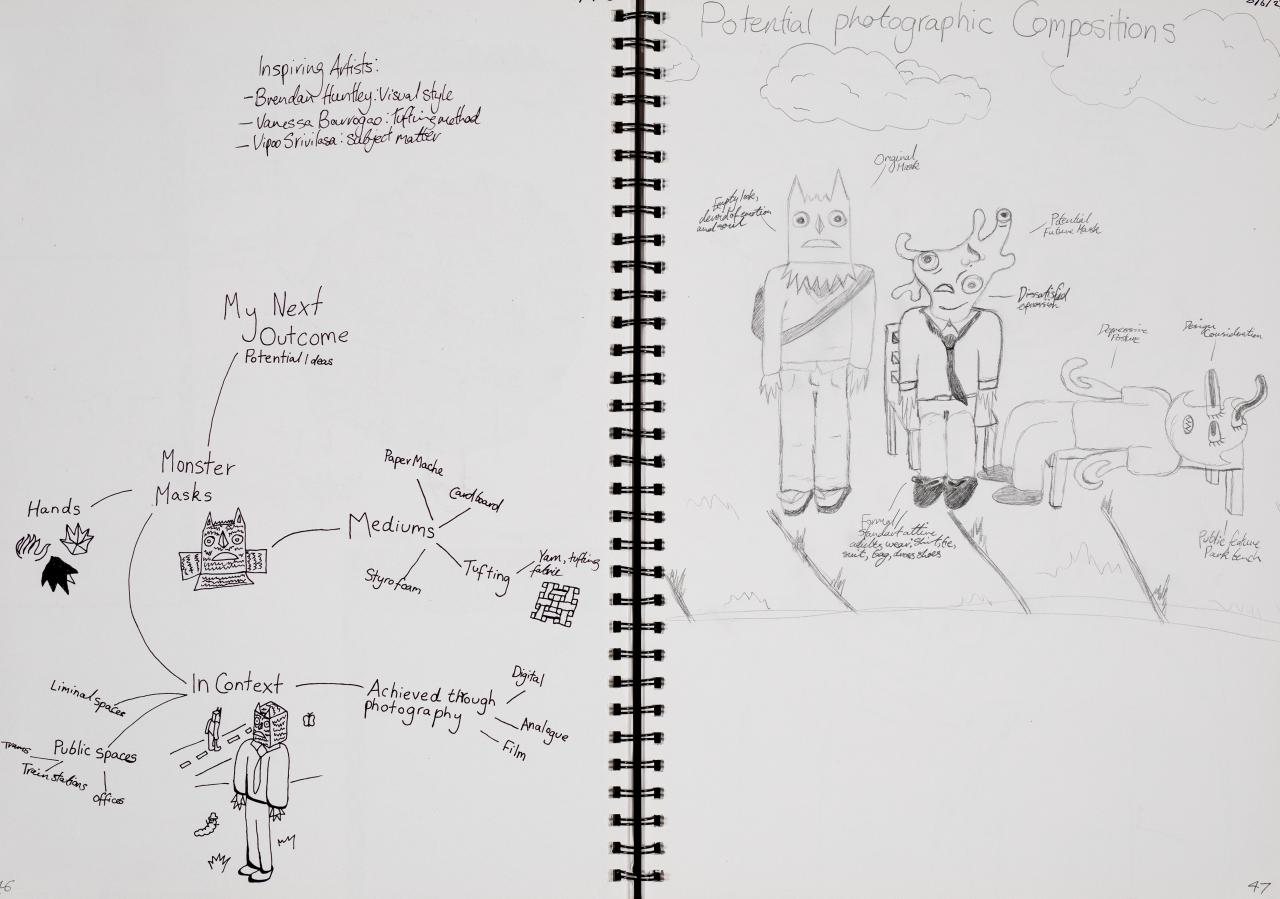 Inspiring Artists:
- Brendan Huntley: Visual style
- Vanessa Barragao: Tufting method
- Vipoo Srivilasa: Subject matter
My Next
Outcome
Potential Ideas
Monster
Masks
Hands
Mediums
Paper Mache
Cardboard
Styrofoam
Tufting
Yarn, tufting
fabric
In Context
Liminal spaces
Public spaces
Trams
Train stations
Offices
Achieved through
photography
Digital
Analogue
Film
Potential photographic Compositions
Original
Mask
Empty look,
devoid of emotion
and soul
Potential
Future Mask
Dissatisfied
expression
Depressive
Posture
Design
Consideration
Formal
standard attire
adults wear: shirt, tie,
suit, bag, dress shoes
Public feature
Park bench
47